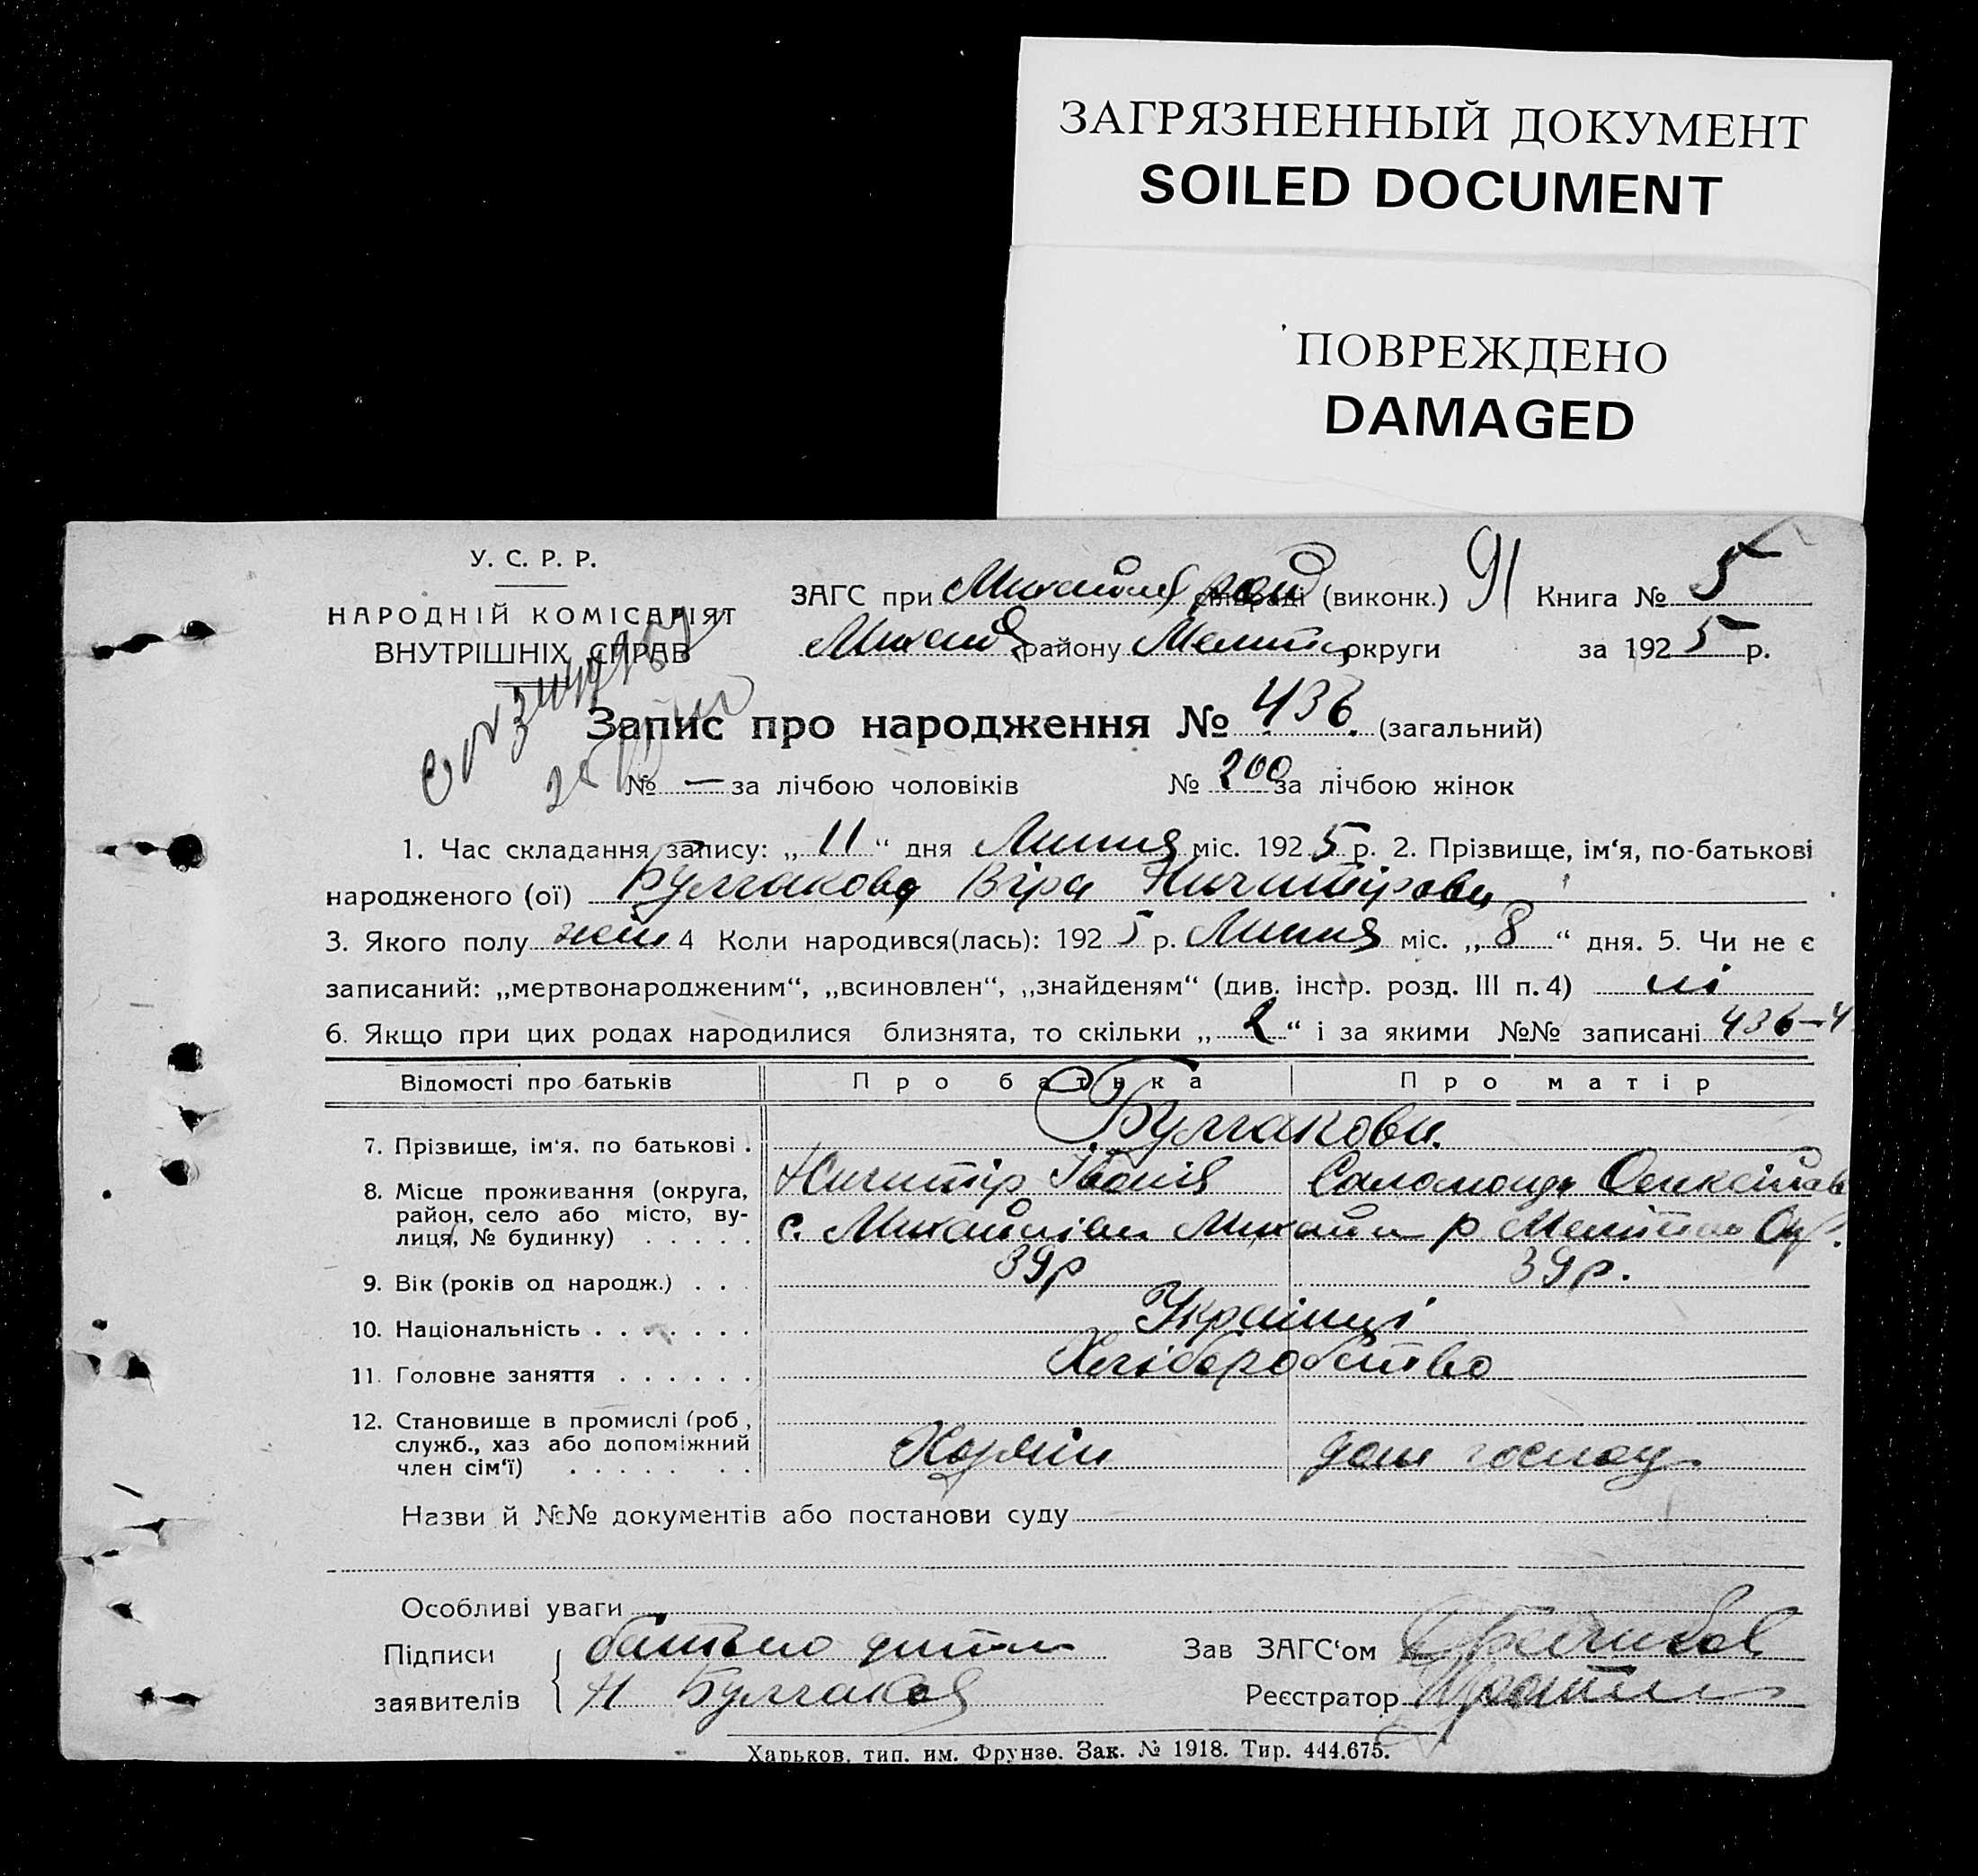 ЗАГРЯЗНЕННЫЙ ДОКУМЕНТ
SOILED DOCUMENT
ПОВРЕЖДЕНО
DAMAGED
У. С. Р. Р.
НАРОДНІЙ КОМІСАРІЯТ
ВНУТРІШНІХ СПРАВ
ЗАГС при сільраді (виконк.) 91 Книга № 5
району Меліт округи за 1925 р.
Запис про народження № 436. (загальний)
№ — за лічбою чоловіків № 200 за лічбою жінок
1. Час складання запису: „ 11 “ дня Липня міс. 1925 р. 2. Прізвище, ім‘я, по-батькові
народженого (ої) Булгакова Віра Ничипіровна
3. Якого полу жін 4 Коли народився(лась): 1925 р. Липня міс. „ 8 “ дня. 5. Чи не є
записаний: „мертвонародженим“, „всиновлен“, „знайденям“ (див. інстр. розд. III п. 4) ні
6. Якщо при цих родах народилися близнята, то скільки „ 2 “ і за якими №№ записані 436–4
Відомості про батьків Про батька Про матір
7. Прізвище, ім‘я, по батькові . Булгакови.
Ничипір Іванів
8. Місце проживання (округа,
район, село або місто, ву-
лиця, № будинку) . . . . . с. Михайлівки Михайл р Меліт Окр.
9. Вік (років од народж.) . . . 39р 39р.
10. Національність . . . . . . . Українці
11. Головне заняття . . . . . . Хліборобство
12. Становище в промислі (роб,
служб., хаз або допоміжний
член сім‘ї) . . . . . . . Хазяїн дом господ
Назви й №№ документів або постанови суду
Особливі уваги
Підписи батько дитини Зав ЗАГС‘ом
заявителів Н Булгаков Реєстратор
Харьков, тип. им. Фрунзе. Зак. № 1918. Тир. 444.675.